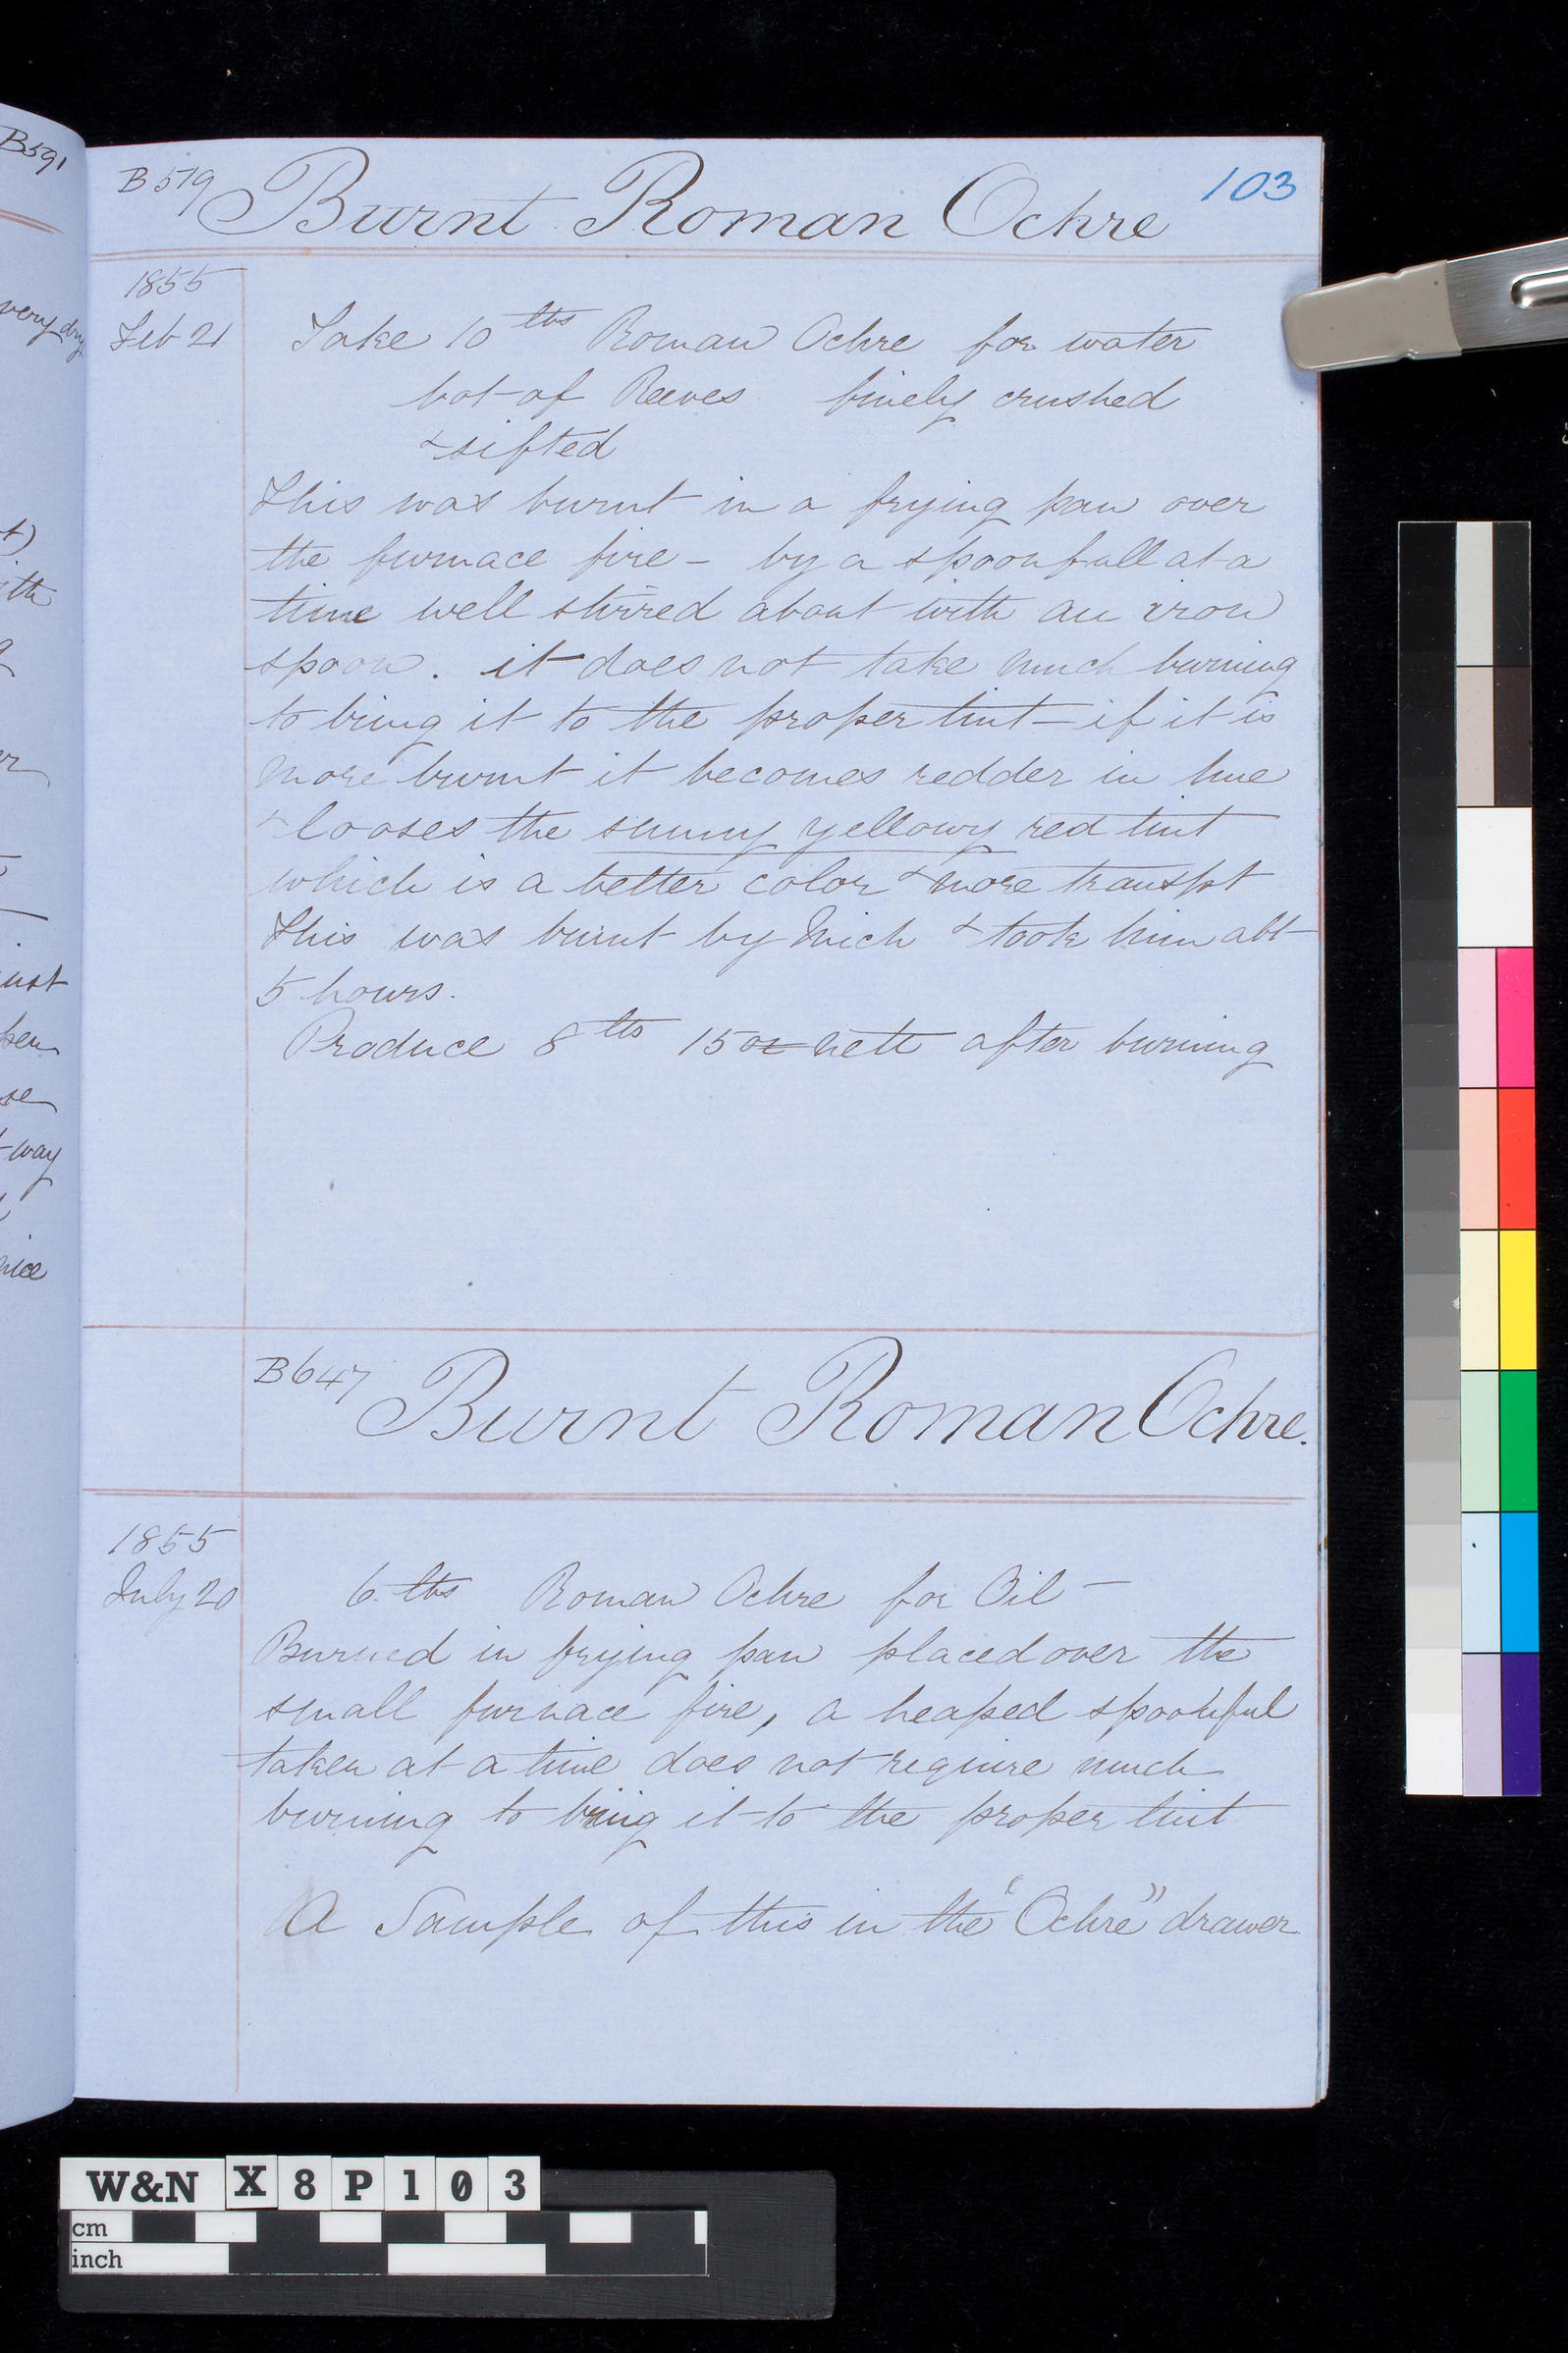 B591
very dry
t)
ith
er
ust
per
se
t way
nice
B579 Burnt Roman Ochre 103
1855
Feb 21 Take 10 lbs Roman Ochre for water
bot of Reeves finely crushed
& sifted
This was burnt in a frying pan over
the furnace fire - by a spoonfull at a
time well stirred about with an iron
spoon. it does not take much burning
to bring it to the proper tint - if it is
more burnt it becomes redder in hue
& looses the sunny yellowy red tint
which is a better color & more transpt
This was burnt by Mich & took him abt
5 hours.
Produce 8 lbs 15 oz nett after burning
B647 Burnt Roman Ochre.
1855
July 20 6 lbs Roman Ochre for Oil -
Burned in frying pan placed over the
small furnace fire, a heaped spoonful
taken at a time does not require much
burning to bring it to the proper tint
A Sample of this in the "Ochre" drawer
W&N X8P103
cm
inch